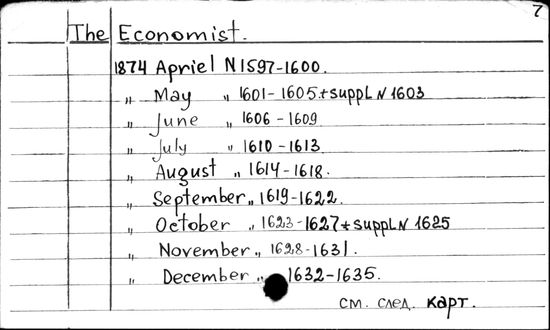 7
The Economist.
1874 Apriel N 1597-1600.
„ May „ 1601-1605+suppl N 1603
„ June „ 1606-1609
„ July „ 1610-1613
„ August „ 1614-1618.
„ September „ 1619-1622.
„ October „ 1623-1627+suppl N 1625
„ November „ 1628-1631.
„ December „ 1632-1635.
см. след. карт.